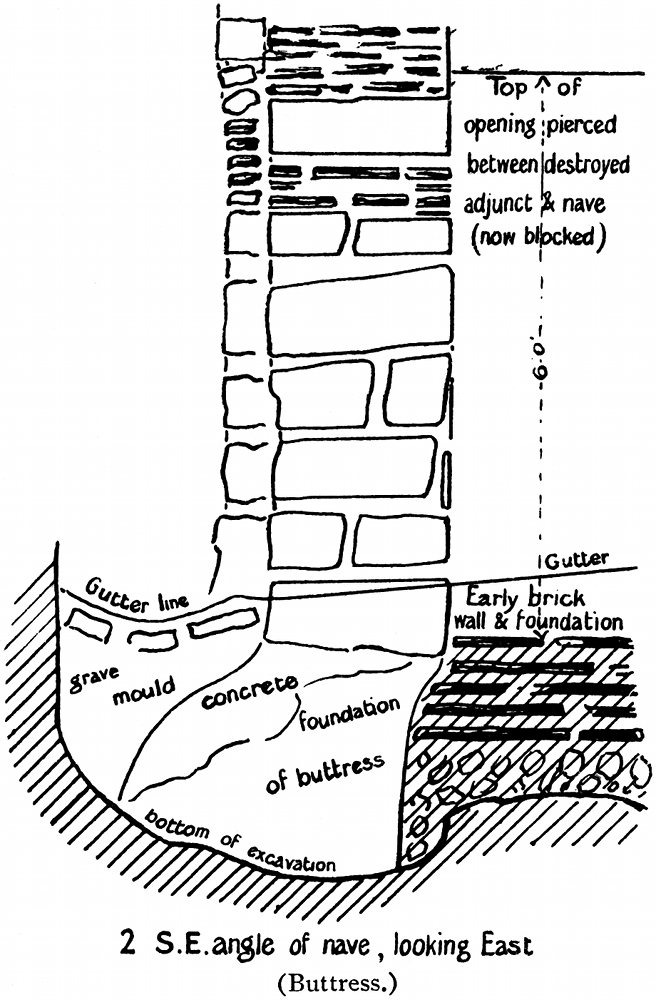 Top of
opening pierced
between destroyed
adjunct & nave
(now blocked)
6.0'
Gutter
Gutter line
Early brick
wall & foundation
grave
mould
concrete
foundation
of buttress
bottom of excavation
2 S.E. angle of nave, looking East
(Buttress.)